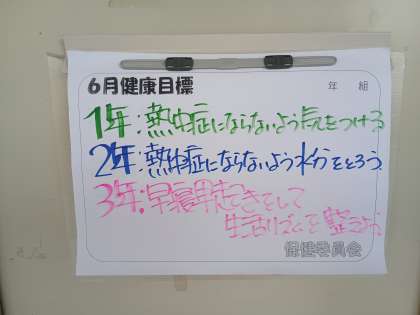 6月健康目標
年 組
1年:熱中症にならないよう気をつける
2年:熱中症にならないよう水分をとろう
3年:早寝早起きをして
生活リズムを整えよう
保健委員会